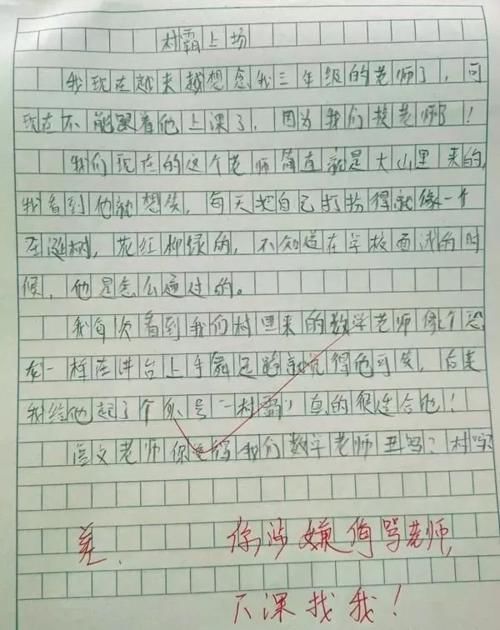 村霸上场
我现在越来越想念我三年级的老师了，可
现在不能跟着他上课了，因为我们换老师了！
我们现在的这个老师简直就是大山里来的，
我看到他就想笑，每天把自己打扮得就像一个
圣诞树，花红柳绿的，不知道在学校面试的时
候，他是怎么通过的。
我每次看到我们村里来的数学老师像个恐
龙一样在讲台上手舞足蹈就觉得他可笑，后来
我给他起了个外号"村霸"，真的很适合他！
语文老师你觉得我们数学老师丑吗？村吗？
差.
你涉嫌侮骂老师，
下课找我！